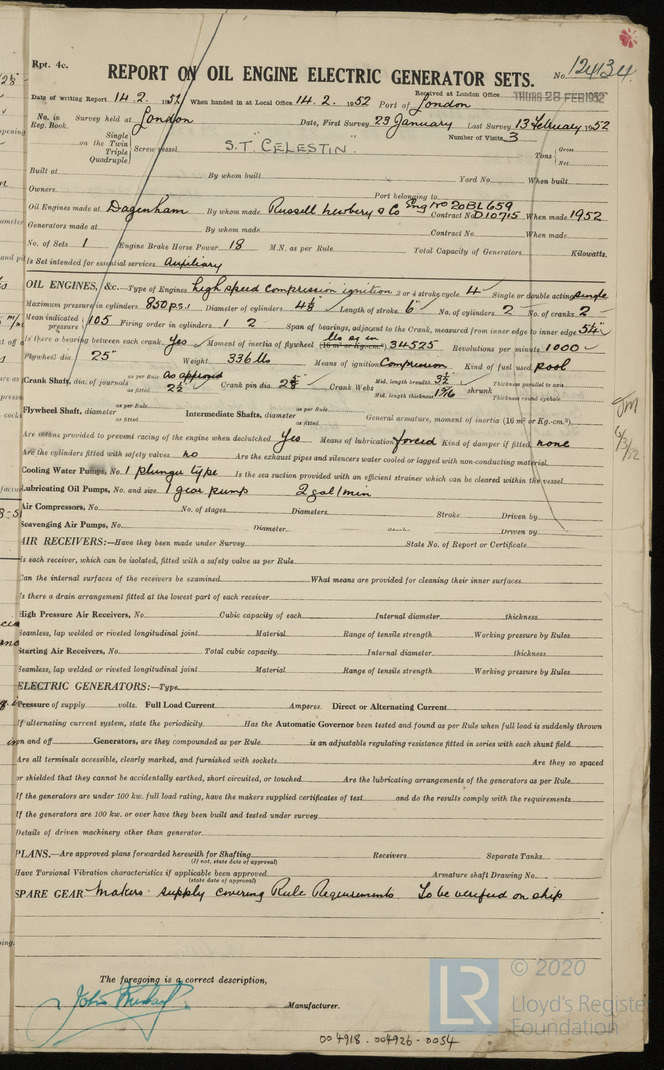 Rpt. 4c.
REPORT ON OIL ENGINE ELECTRIC GENERATOR SETS.
No. 124134
Received at London Office THURS 28 FEB 1952
Date of writing Report 14.2. 1952 When handed in at Local Office 14.2. 1952 Port of London
No. in Reg. Book. Survey held at London Date, First Survey 23 January Last Survey 13 February 1952
Number of Visits 3
on the Single Twin Triple Quadruple Screw vessel S.T. "CELESTIN" Tons Gross Net
Built at By whom built Yard No. When built
Owners Port belonging to
Oil Engines made at Dagenham By whom made Russell Newbery & Co Eng No 20BL659 Contract No. D10715 When made 1952
Generators made at By whom made Contract No. When made
No. of Sets 1 Engine Brake Horse Power 18 M.N. as per Rule Total Capacity of Generators Kilowatts.
Is Set intended for essential services Auxiliary
OIL ENGINES, &c.—Type of Engines high speed compression ignition 2 or 4 stroke cycle 4 Single or double acting single
Maximum pressure in cylinders 850 p.s.i Diameter of cylinders Length of stroke 6" No. of cylinders 2 No. of cranks 2
Mean indicated pressure 105 Firing order in cylinders 1 2 Span of bearings, adjacent to the Crank, measured from inner edge to inner edge
Is there a bearing between each crank Yes Moment of inertia of flywheel (16 m² or Kg.-cm².) 34525 Revolutions per minute 1000
Flywheel dia. 25" Weight 336 lbs Means of ignition Compression Kind of fuel used pool
Crank Shaft, dia. of journals as per Rule As approved as fitted Crank pin dia. Crank Webs Mid. length breadth Mid. length thickness shrunk Thickness parallel to axis Thickness round eyehole
Flywheel Shaft, diameter as per Rule as fitted Intermediate Shafts, diameter as per Rule as fitted General armature, moment of inertia (16 m² or Kg.-cm.²)
Are means provided to prevent racing of the engine when declutched Yes Means of lubrication forced Kind of damper if fitted none
Are the cylinders fitted with safety valves no Are the exhaust pipes and silencers water cooled or lagged with non-conducting material
Cooling Water Pumps, No. 1 plunger type Is the sea suction provided with an efficient strainer which can be cleared within the vessel
Lubricating Oil Pumps, No. and size 1 gear pump 2 gal/min
Air Compressors, No. No. of stages Diameters Stroke Driven by
Scavenging Air Pumps, No. Diameter Stroke Driven by
AIR RECEIVERS:—Have they been made under Survey State No. of Report or Certificate
Is each receiver, which can be isolated, fitted with a safety valve as per Rule
Can the internal surfaces of the receivers be examined What means are provided for cleaning their inner surfaces
Is there a drain arrangement fitted at the lowest part of each receiver
High Pressure Air Receivers, No. Cubic capacity of each Internal diameter thickness
Seamless, lap welded or riveted longitudinal joint Material Range of tensile strength Working pressure by Rules
Starting Air Receivers, No. Total cubic capacity Internal diameter thickness
Seamless, lap welded or riveted longitudinal joint Material Range of tensile strength Working pressure by Rules
ELECTRIC GENERATORS:—Type
Pressure of supply volts. Full Load Current Amperes. Direct or Alternating Current
If alternating current system, state the periodicity Has the Automatic Governor been tested and found as per Rule when full load is suddenly thrown
on and off Generators, are they compounded as per Rule is an adjustable regulating resistance fitted in series with each shunt field
Are all terminals accessible, clearly marked, and furnished with sockets Are they so spaced
or shielded that they cannot be accidentally earthed, short circuited, or touched Are the lubricating arrangements of the generators as per Rule
If the generators are under 100 kw. full load rating, have the makers supplied certificates of test and do the results comply with the requirements
If the generators are 100 kw. or over have they been built and tested under survey
Details of driven machinery other than generator
PLANS.—Are approved plans forwarded herewith for Shafting Receivers Separate Tanks
(If not, state date of approval)
Have Torsional Vibration characteristics if applicable been approved Armature shaft Drawing No.
(state date of approval)
SPARE GEAR Makers supply covering Rule Requirements. To be verified on ship
The foregoing is a correct description,
Manufacturer.
JM
6/3/52
© 2020
LR
Lloyd's Register
Foundation
004918-004926-0054